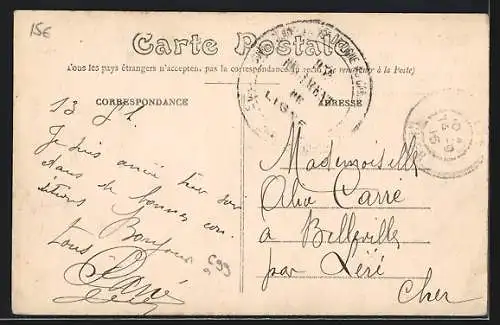 15€
Carte Postale
Tous les pays étrangers n'acceptent pas la correspondance au recto (se renseigner à la Poste)
CORRESPONDANCE
ADRESSE
RÉGIMENT
DE
LIGNE
13
Je suis arrivé hier soir
dans de bonnes con
ditions Bonjour
tous
Carré
699
Mademoiselle
Carré
à Belleville
par Léré
Cher